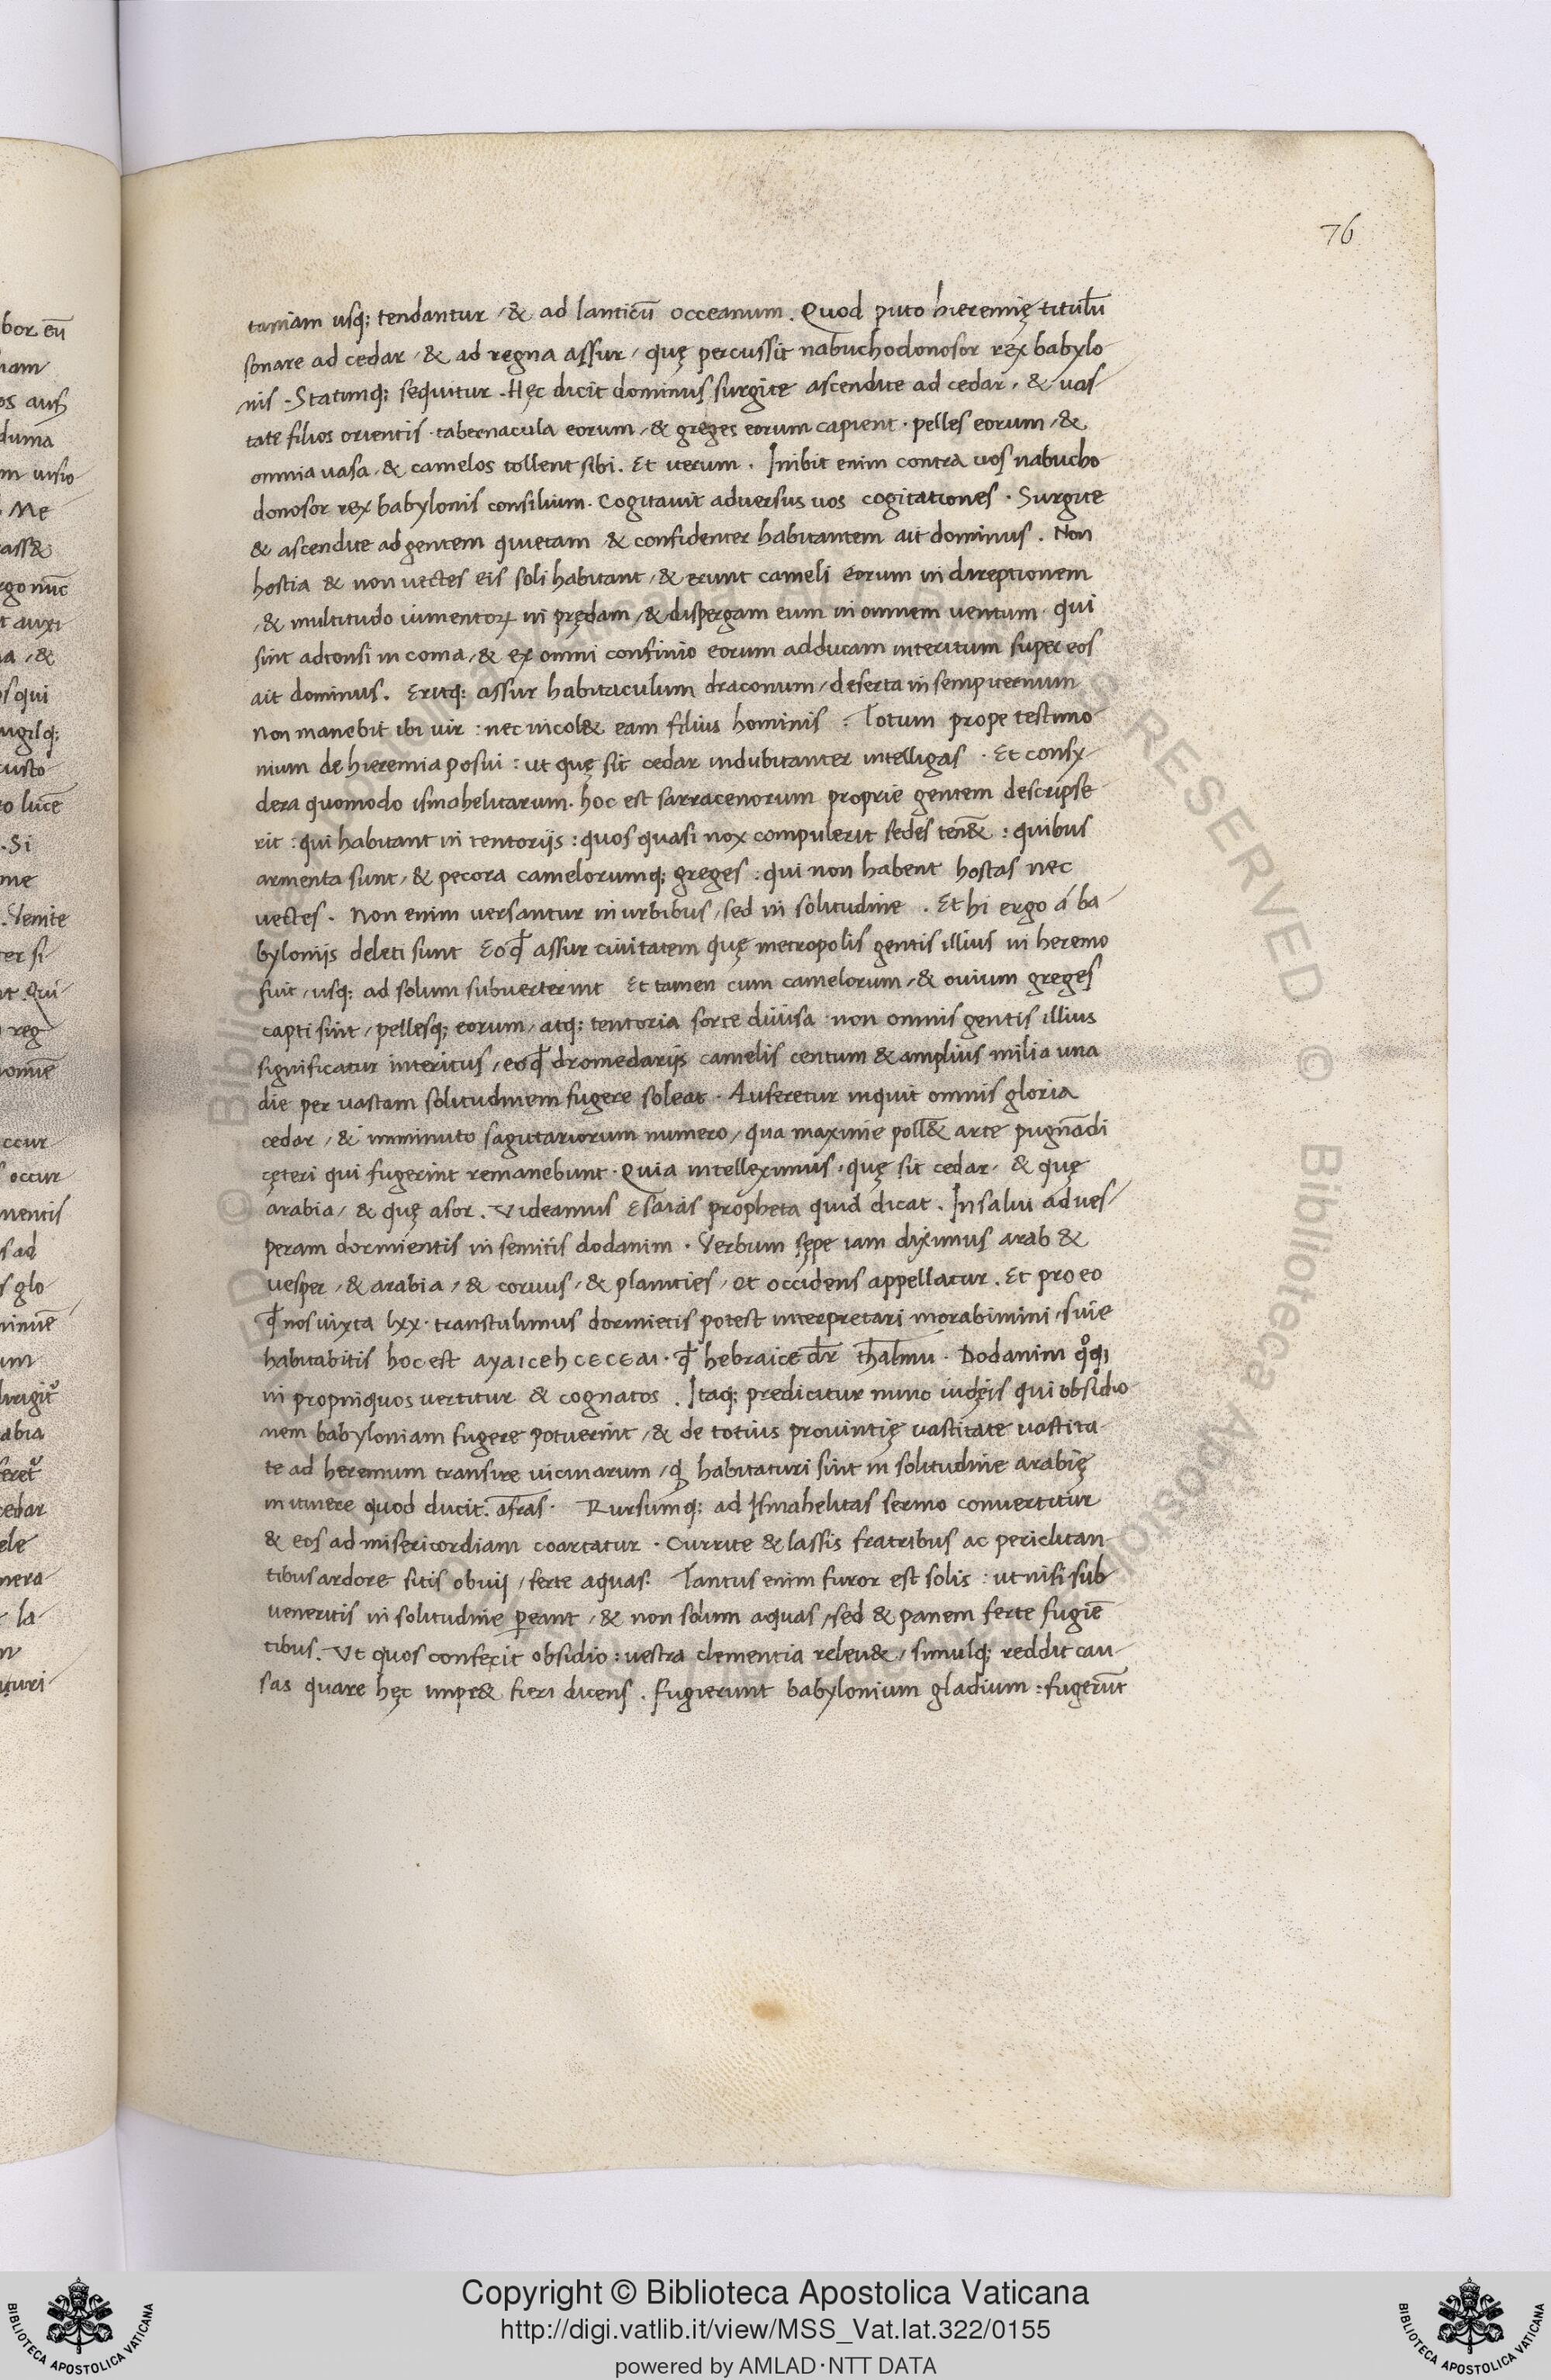 76
taniam usq; tendantur / & ad lanticū occeanum. Quod puto hieremię titulū
sonare ad cedar / & ad regna assur / quę percussit nabuchodonosor rex babylo
nis. Statimq; sequitur. Hęc dicit dominus surgite ascendite ad cedar / & uas
tate filios orientis. tabernacula eorum / & greges eorum capient. pelles eorum / &
omnia uasa / & camelos tollent sibi. Et uerum. Inibit enim contra uos nabucho
donosor rex babylonis consilium. Cogitauit aduersus uos cogitationes. Surgite
& ascendite ad gentem quietam & confidenter habitantem ait dominus. Non
hostia & non uectes eis soli habitant / & erunt cameli eorum in direptionem
/ & multitudo iumentoꝝ in prędam / & dispergam eum in omnem uentum qui
sint adtonsi in coma / & ex omni confinio eorum adducam interitum super eos
ait dominus. Eritq; assur habitaculum draconum / deserta in sempiternum
non manebit ibi uir : nec incol& eam filius hominis. Totum prope testimo
nium de hieremia posui : ut quę sit cedar indubitanter intelligas. Et consy
dera quomodo ismahelitarum. hoc est sarracenorum proprie gentem descripse
rit : qui habitant in tentorijs : quos quasi nox compulerit sedes ten& : quibus
armenta sunt / & pecora camelorumq; greges : qui non habent hostas nec
uectes. Non enim uersantur in urbibus / sed in solitudine. Et hi ergo á ba
bylonijs deleti sunt Eoꝙ assur ciuitatem quę metropolis gentis illius in heremo
fuit / usq; ad solum subuerterint Et tamen cum camelorum / & ouium greges
capti sint / pellesq; eorum / atq; tentoria sorte diuisa : non omnis gentis illius
significatur interitus / eoꝙ dromedarijs camelis centum & amplius milia una
die per uastam solitudinem fugere soleat. Auferetur inquit omnis gloria
cedar / & imminuto sagittariorum numero / qua maxime poll& arte pugnādi
cęteri qui fugerint remanebunt. Quia intelleximus / quę sit cedar / & quę
arabia / & quę asor. Videamus Esaias propheta quid dicat. In saltu ad ues
peram dormientis in semitis dodanim. Verbum sępe iam diximus arab &
uesper / & arabia / & coruus / & planities / et occidens appellatur. Et pro eo
ꝙ nos iuxta lxx. transtulimus dormietis potest interpretari morabimini / siue
habitabitis hoc est ayaιcehcecεaι. ꝙ hebraice dr̄ thalmu. Dodanim
in propinquos uertitur & cognatos. Itaq; predicitur nunc iudęis qui obsidio
nem babyloniam fugere potuerint / & de totius prouintię uastitate uastita
te ad heremum transire uicinarum / ꝙ habitaturi sint in solitudine arabię
in itinere quod ducit. Rursumq; ad Ismahelitas sermo conuertitur
& eos ad misericordiam coartatur. Currite & lassis fratribus ac periclitan
tibus ardore sitis obuij / ferte aquas. Tantus enim furor est solis : ut nisi sub
ueneritis in solitudine ꝑeant / & non solum aquas / sed & panem ferte fugiē
tibus. Ut quos confecit obsidio : uestra clementia releu& / simulq; reddit cau
sas quare hęc impr& fieri dicens. fugierunt babylonium gladium : fugerūt
Copyright © Biblioteca Apostolica Vaticana
http://digi.vatlib.it/view/MSS_Vat.lat.322/0155
powered by AMLAD·NTT DATA